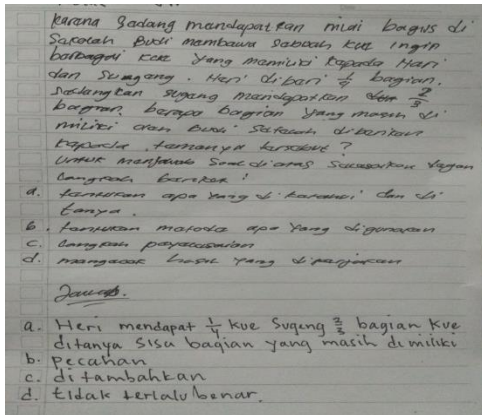 karana sadang mandapatkan nilai bagus di
sakolah Budi mambawa sabuah kue ingin
barbagi kue yang mamiliki kapada Hari
dan Sugang. Hari dibari bagian.
sadangkan sugang mandapatkan 2/3
bagian. barapa bagian yang masih di
miliki olah Budi satalah dibarikan
kapada tamanya tarsabut?
untuk manjawab Soal diatas Salasaikan dagan
langkah barikut!
a. tantukan apa yang dikatahui dan di
tanya.
b. tantukan matoda apa yang digunakan
c. langkah payalasaian
d. mangacak hasil yang dipanjakan
Jawab.
a. Heri mendapat 1/4 kue Sugeng 2/3 bagian kue
ditanya sisa bagian yang masih dimiliki
b. pecahan
c. ditambahkan
d. tidak terlalu benar.